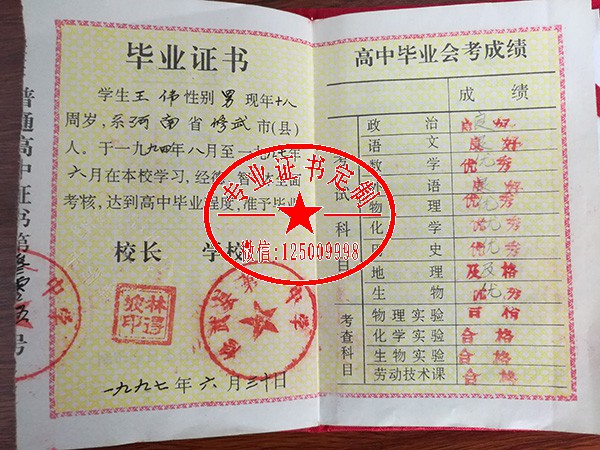 毕业证书
学生王伟性别男现年十八
周岁,系河南省修武市(县)
人。于一九九四年八月至一九九七年
六月在本校学习,经德智体全面
考核,达到高中毕业程度,准予毕业
校长 学校
一九九七年六月三十日
普通高中证书第 号
毕业证书定制
微信:125009998
高中毕业会考成绩
成绩
政治 良好
语文 良好
数学 优秀
语 良好
物理 优秀
化学 优秀
历史 优秀
地理 及格
生物 优秀
考试科目
物理实验 合格
化学实验 合格
生物实验 合格
劳动技术课 合格
考查科目